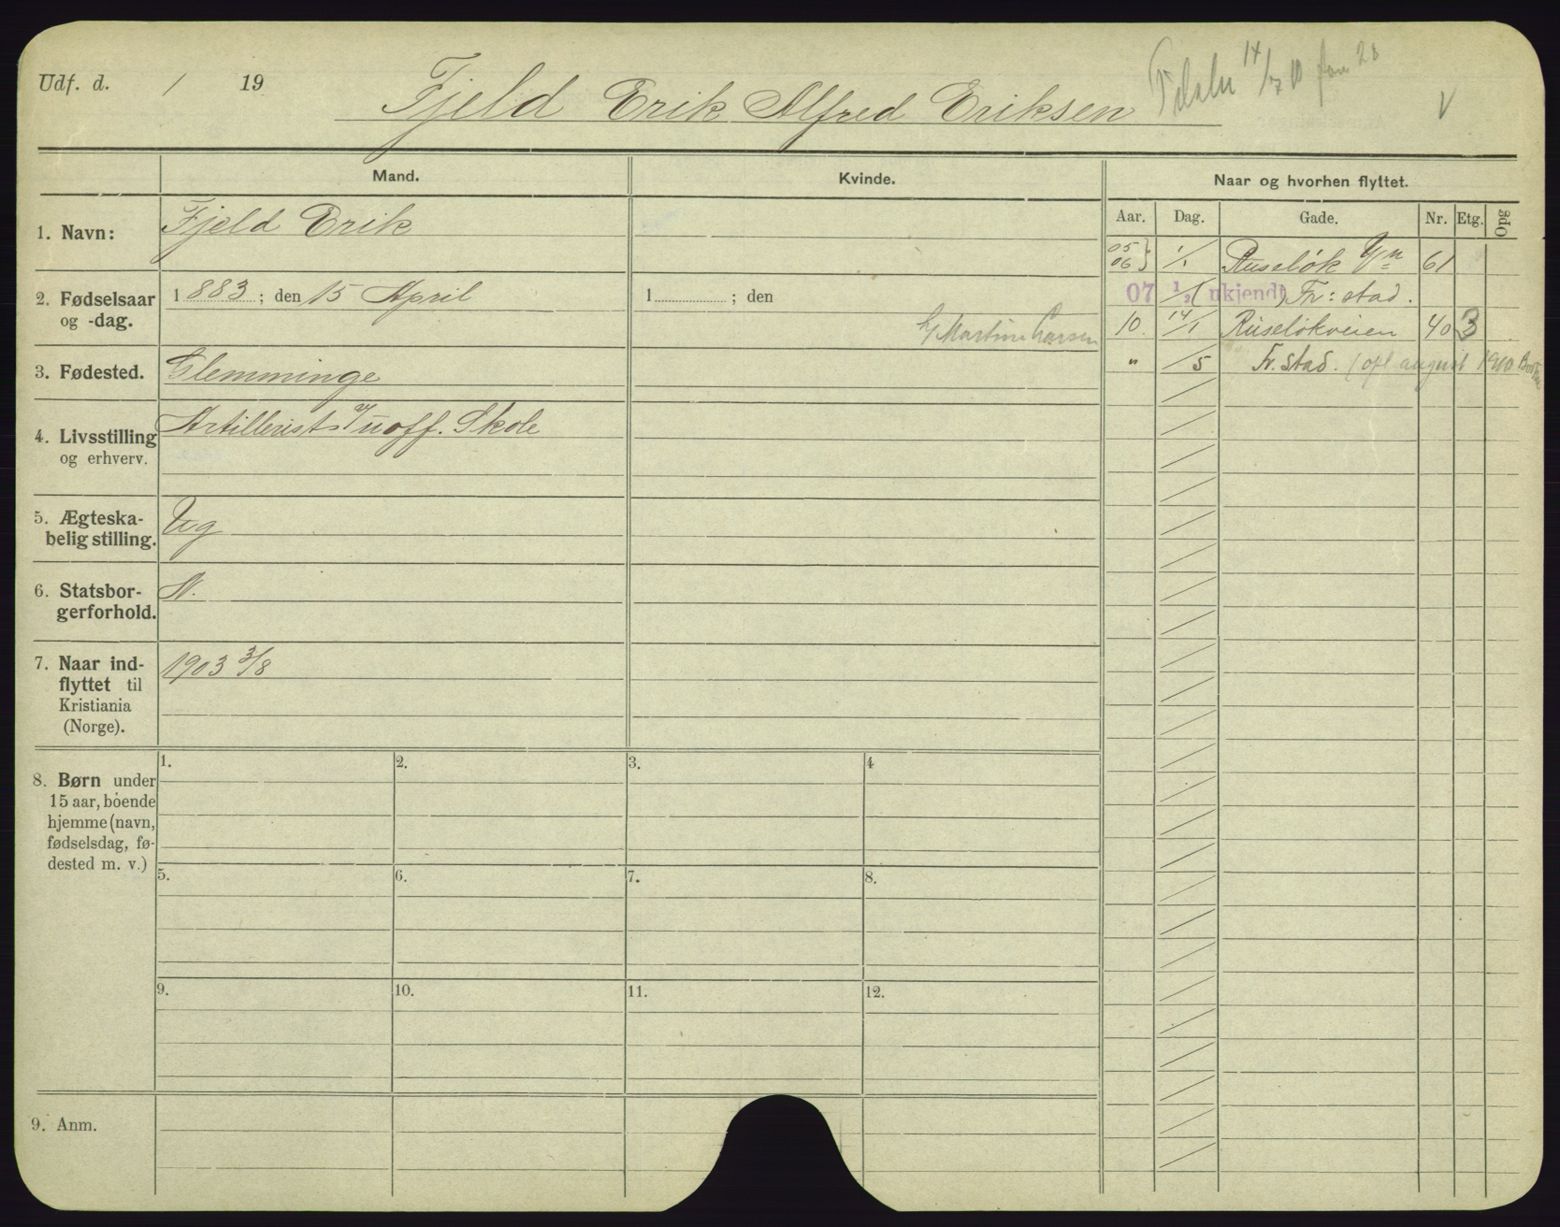 Udf. d. / 19
Fjeld Erik Alfred Eriksen
14/7 10
V
Mand.
Kvinde.
Naar og hvorhen flyttet.
Aar. Dag. Gade. Nr. Etg. Opg
1. Navn: Fjeld Erik
05 06 } 1/1 Ruseløk 61
2. Fødselsaar og -dag. 1883; den 15 April
1 ; den
07 1/2 (ukjendt) Fr: stad.
h/ Martin Larsen
10. 14/1 Ruseløkveien 40 3
3. Fødested. Glemminge
" /5 Fr. stad. (opl august 1910
4. Livsstilling og erhverv. Artillerist v/ uoff. Skole
5. Ægteska-
belig stilling. Ug
6. Statsbor-
gerforhold. N.
7. Naar ind-
flyttet til
Kristiania
(Norge). 1903 3/8
8. Børn under
15 aar, boende
hjemme (navn,
fødselsdag, fø-
dested m. v.)
1. 2. 3. 4
5. 6. 7. 8.
9. 10. 11. 12.
9. Anm.